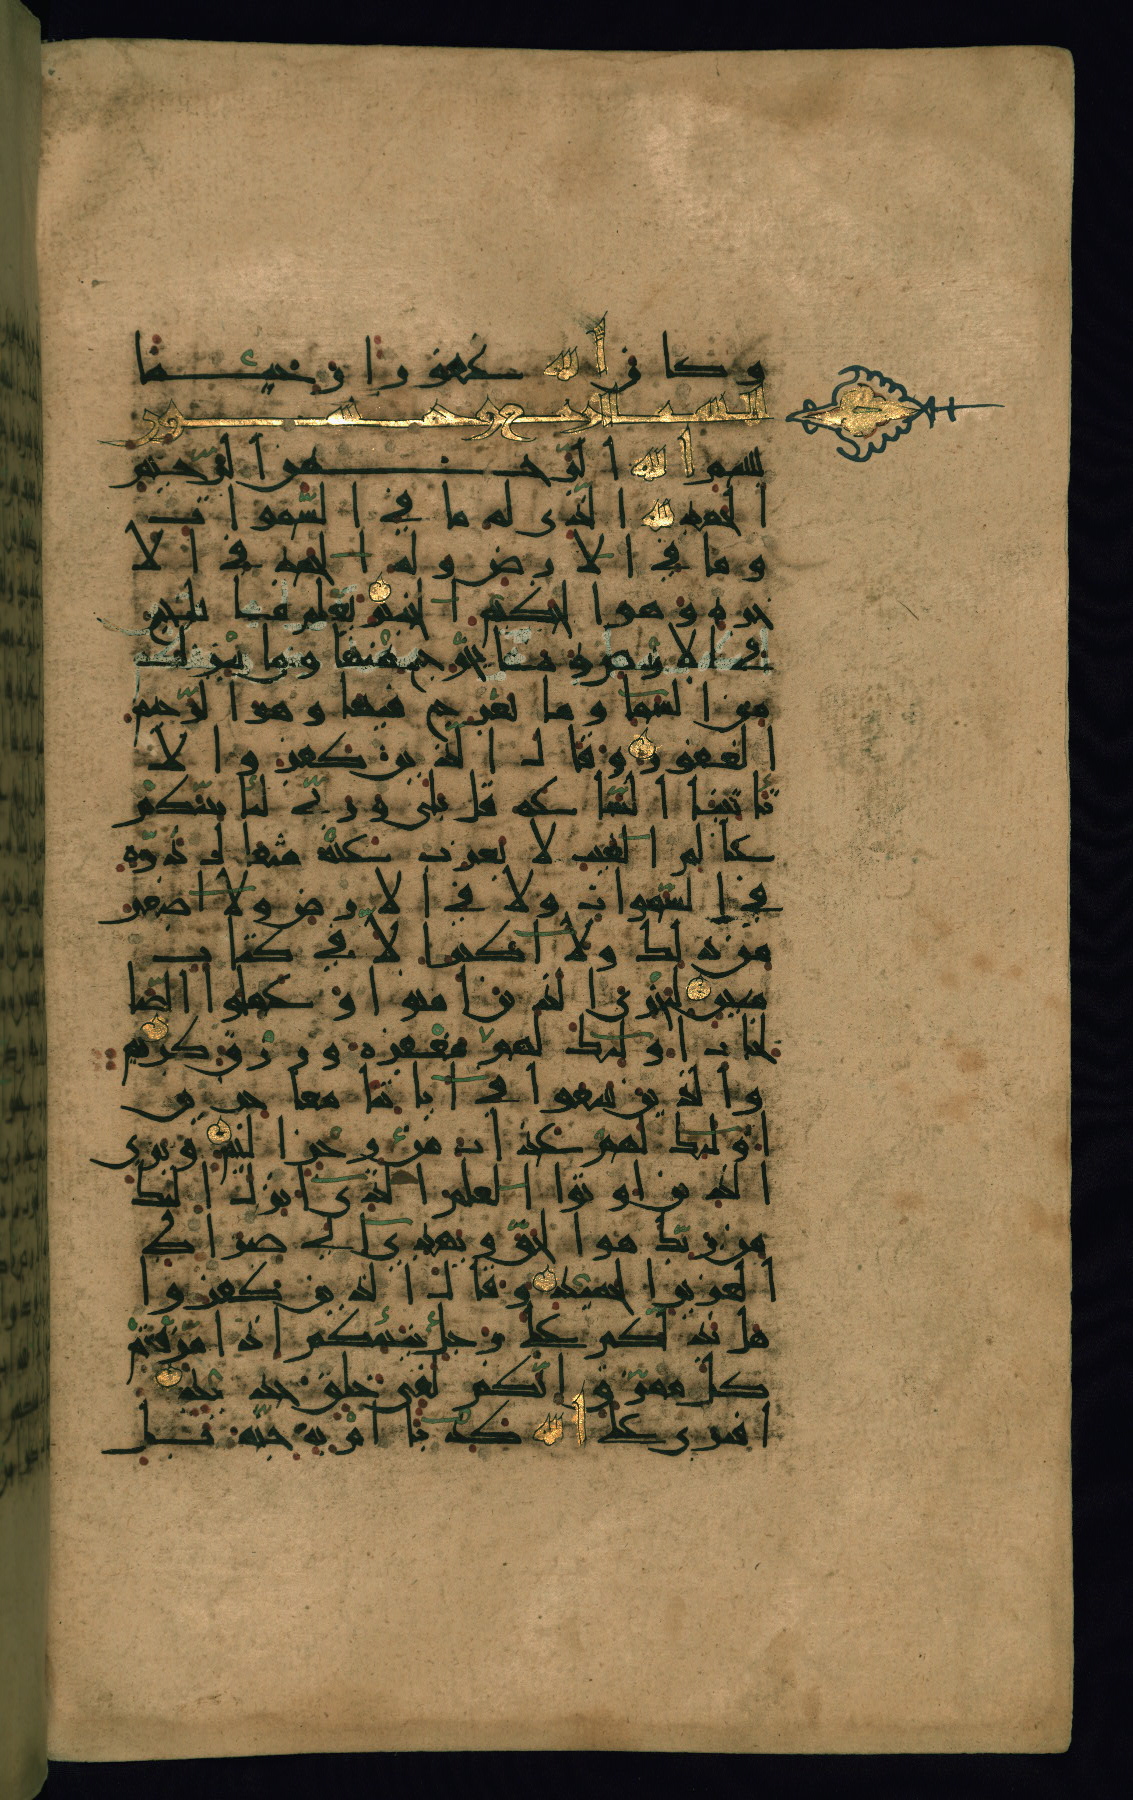 وكان الله غفورا رحيما
بسم الله الرحمن الرحيم
الحمد لله الذى له ما في السموات
وما في الارض وله الحمد في الا
خرة وهو الحكيم الخبير يعلم ما يلج
في الارض وما يخرج منها وما ينزل
من السما وما يعرج فيها وهو الرحيم
الغفور وقال الذين كفروا لا
تاتينا الساعه قل بلى وربي لتاتينكم
عالم الغيب لا يعزب عنه مثقال ذرة
في السموات ولا في الارض ولا اصغر
من ذلك ولا اكبر الا في كتاب
مبين ليجزى الذين امنوا وعملوا الصا
لحات اولئك لهم مغفرة ورزق كريم
والذين سعوا في اياتنا معاجزين
اولئك لهم عذاب من رجز اليم ويرى
الذين اوتوا العلم الذى انزل اليك
من ربك هو الحق ويهدى الى صراط
العزيز الحميد وقال الذين كفروا
هل ندلكم على رجل ينبئكم اذا مزقتم
كل ممزق انكم لفى خلق جديد
افترى على الله كذبا ام به جنة بل